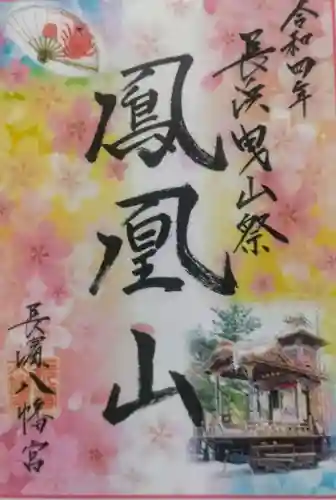 令和四年
長浜曳山祭
鳳凰山
長濱八幡宮